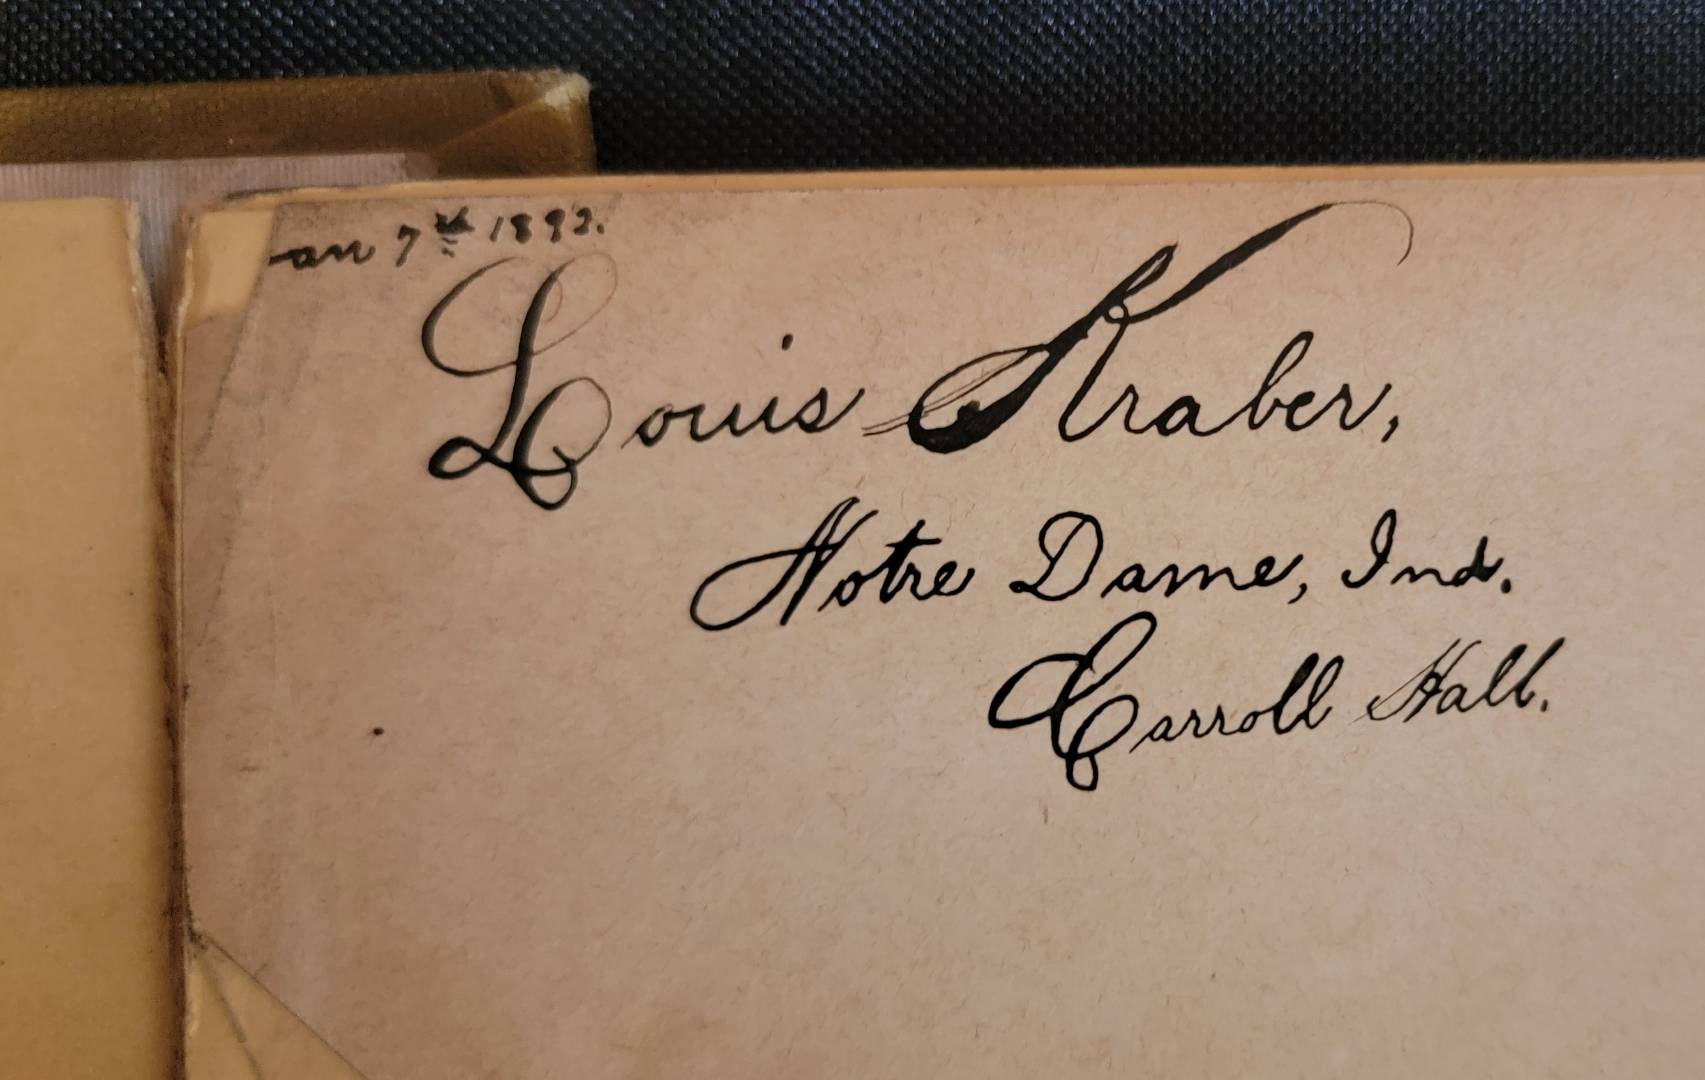 an 7th 1892.
Louis Kraber,
Notre Dame, Ind.
Carroll Hall.